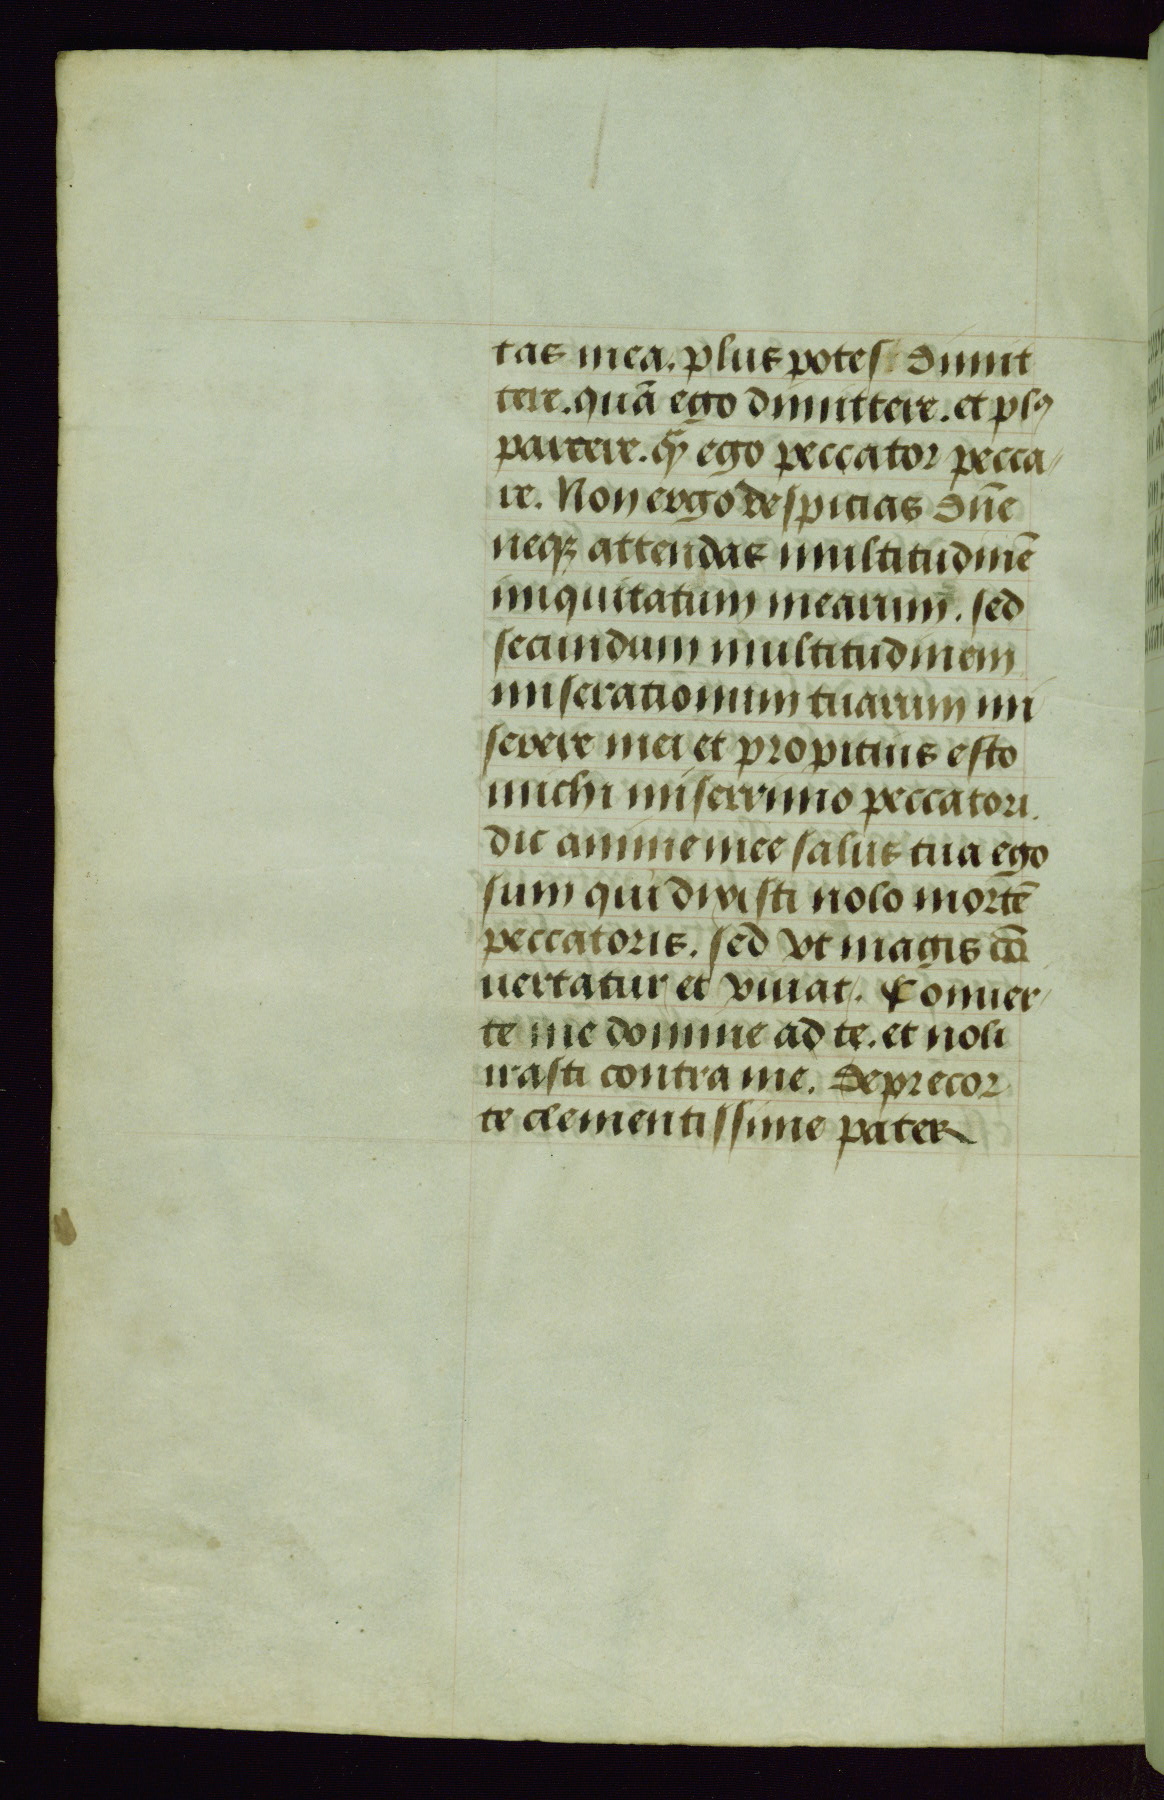 tas mea. plus potes dimit
tere. quā ego dimittere. et plꝰ
parcere. q̄ȝ ego peccator pecca/
re. Non ergo despicias dn̄e
neqȝ attendas multitudinē
iniquitatum mearum. sed
secundum multitudinem
miserationum tuarum mi
serere mei et propitius esto
michi miserrimo peccatori.
dic anime mee salus tua ego
sum qui dixisti nolo mortē
peccatoris. sed vt magis cō
uertatur et viuat. Conuer/
te me domine ad te. et noli
irasti contra me. Deprecor
te clementissime pater